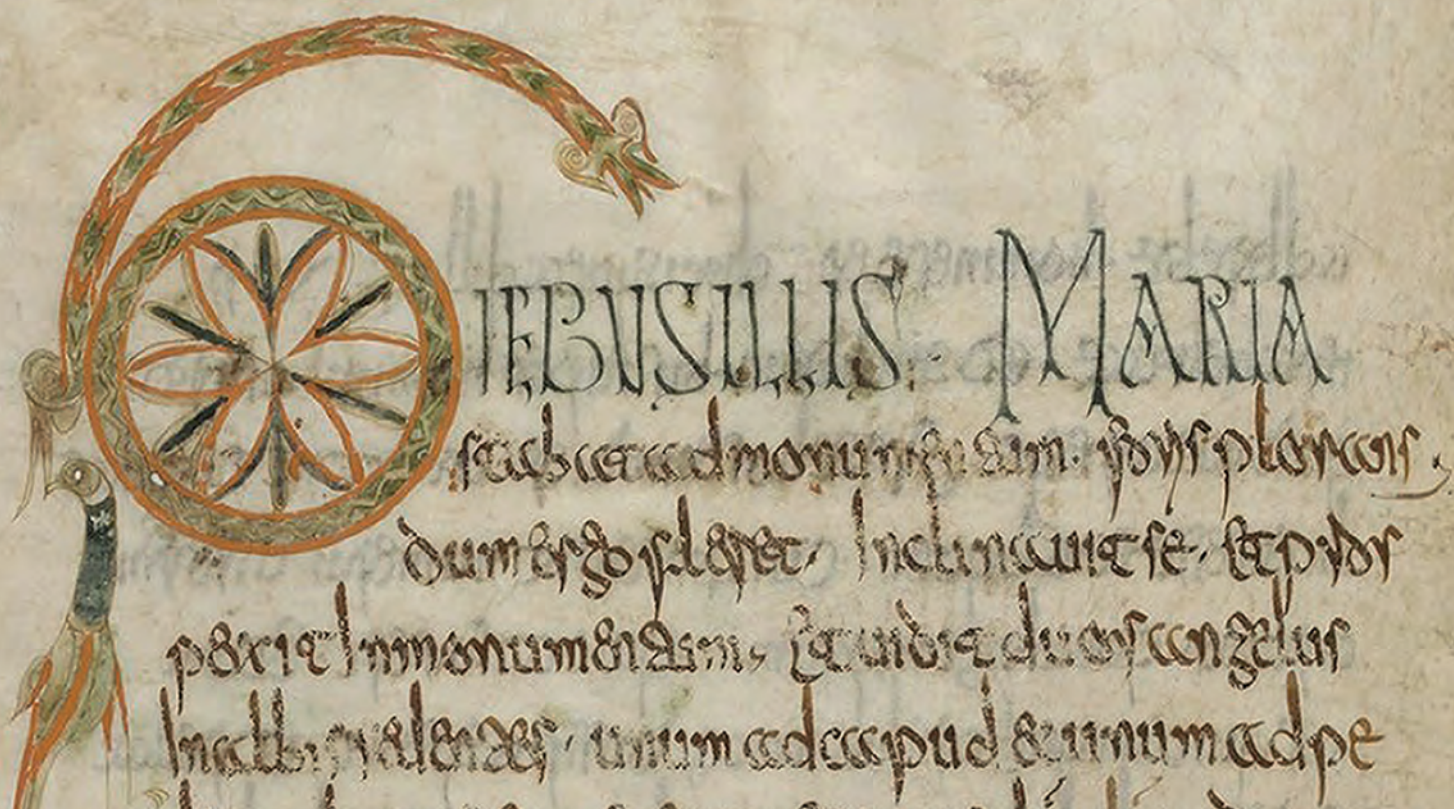 DIEBUS ILLIS MARIA
stabat ad monumentum. foris plorans.
dum ergo fleret, Inclinauit se, et pros
pexit In monumentum, et uidit duos angelus
In albis sedentes, unum ad capud et unum ad pe